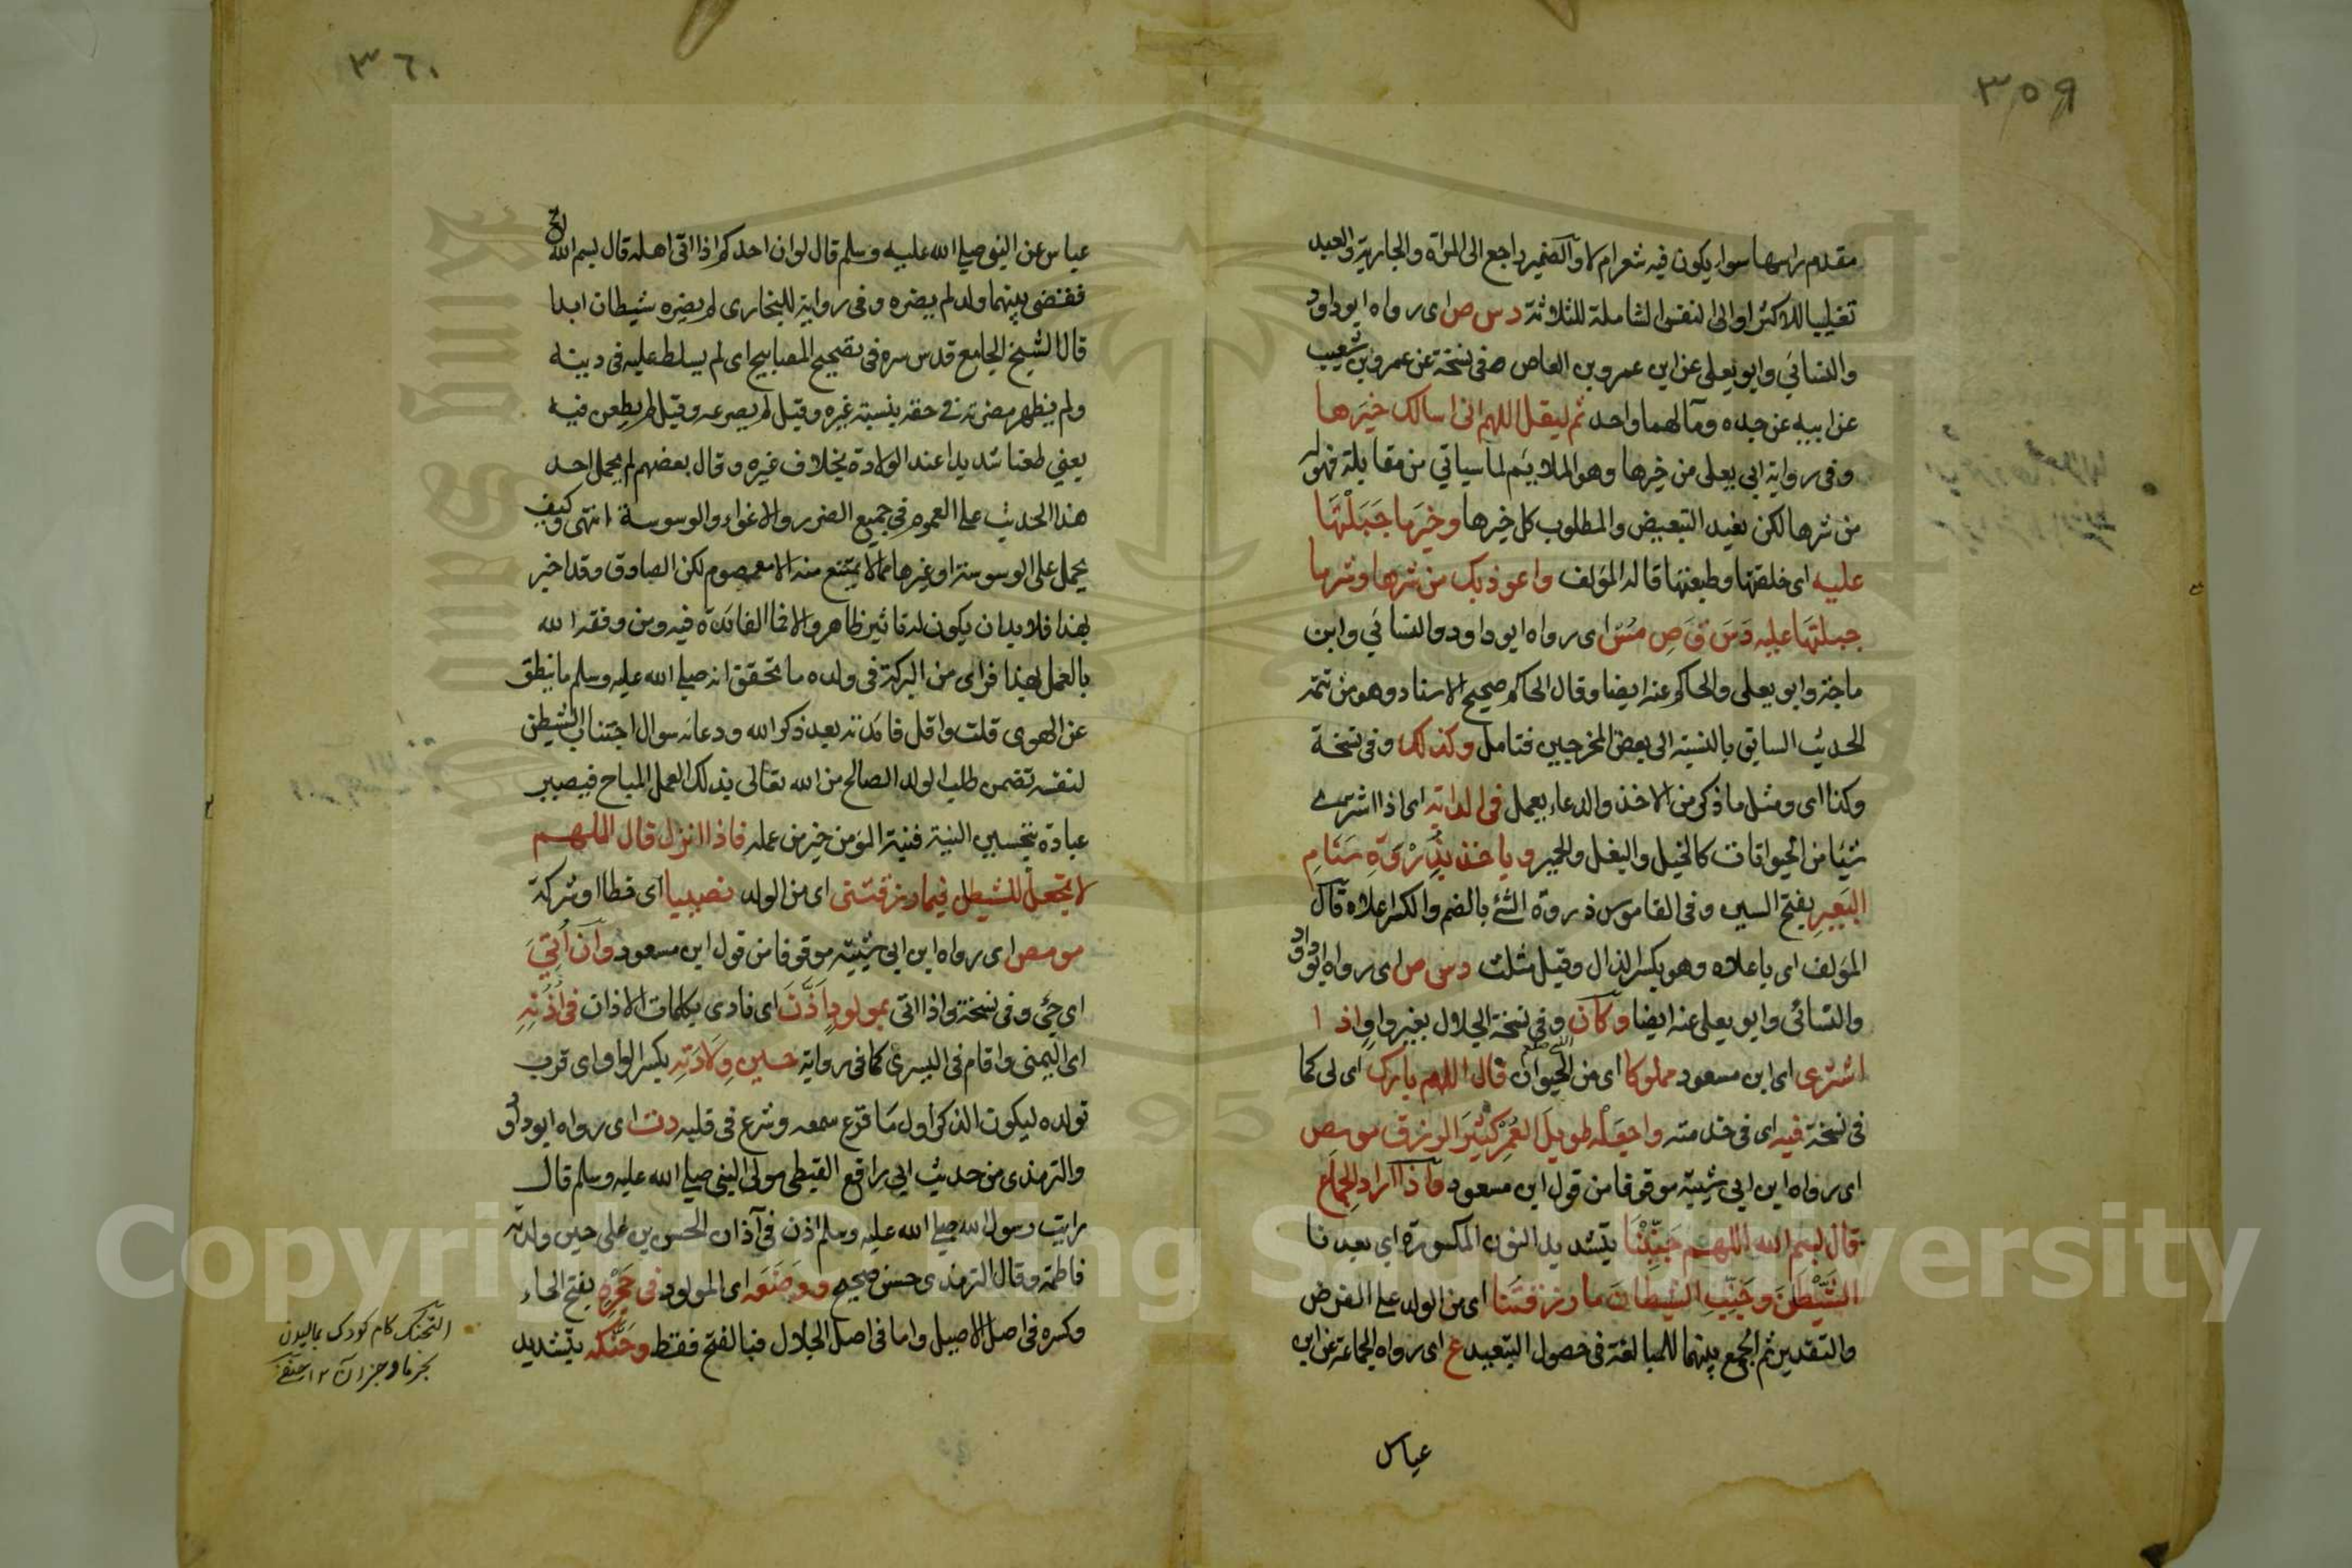 ٣٥٩
مقدم راسها سواء يكون فيه شعر ام لا والضمير راجع الى المراة والجارية والعبد
تغليبا للاكثر او الى النفس الشاملة للثلاثة دس ص اى رواه ابو داود
والنسائي وابو يعلى عن ابن عمرو بن العاص صفى نسخة عن عمرو بن شعيب
عن ابيه عن جده ومآلهما واحد ثم ليقل اللهم انى اسالك خيرها
وفى رواية ابى يعلى من خيرها وهو الملايم لما سياتي من مقابلة فهو له
من شرها لكن يفيد التبعيض والمطلوب كل خيرها وخير ما جَبَلْتَهَا
عليه اى خلقتها وطبعتها قاله المؤلف واعوذ بك من شرها وشر ما
جبلتها عليه دَسَ قَ صِ مُسْ اى رواه ابو داود والنسائي وابن
ماجة وابو يعلى والحاكم عنه ايضا وقال الحاكم صحيح الاسناد وهو من تتمة
الحديث السابق بالنسبة الى بعض المخرجين فتامل وكذلك وفى نسخة
وكذا اى ومثل ما ذكر من الاخذ والدعاء يعمل فى الدابة اى اذا اشترى
شيئا من الحيوانات كالخيل والبغل والحمير و ياخذ بِذِرْوَةِ سَنَامِ
البَعِيرِ بفتح السين وفى القاموس ذروة الشئ بالضم والكسر اعلاه قال
المؤلف اى باعلاه وهو بكسر الذال وقيل مثلث دس ص اى رواه ابو داود
والنسائى وابو يعلى عنه ايضا وكان وفى نسخة الجلال بغير واو اذا
اشترى اى ابن مسعود مملوكا اى من الحيوان قال اللهم بارك اى لى كما
فى نسخة فيه اى فى خدمته واجعله طويل العُمُرِ كثيرَ الرزق موص
اى رواه ابن ابى شيبة موقوفا من قول ابن مسعود واذا اراد الجماع
قال بسم الله اللهم جَنِّبْنَا بتشديد النون المكسورة اى بعدنا
الشَّيْطٰنَ وجَنِّبِ الشيطانَ ما رزقتَنا اى من الولد على الفرض
والتقدير ثم الجمع بينهما للمبالغة فى حصول التبعيد ع اى رواه الجماعة عن ابن
عباس
٣٦٠
عباس عن النبى صلى الله عليه وسلم قال لو ان احدكم اذا اتى اهله قال بسم الله الخ
فقضى بينهما ولد لم يضره وفى رواية للبخارى لم يضره شيطان ابدا
قال الشيخ الجامع قدس سره فى تصحيح المصابيح اى لم يسلط عليه فى دينه
ولم يظهر مضرته فى حقه بنسبة غيره وقيل لم يصرعه وقيل لم يطعن فيه
يعني طعنا شديدا عند الولادة بخلاف غيره وقال بعضهم لم يحمل احد
هذا الحديث على العموم فى جميع الضرر والاغواء والوسوسة انتهى وكيف
يحمل على الوسوسة او غيرها مما لا يمتنع منه الا معصوم لكن الصادق وقد اخبر
بهذا فلا بد ان يكون له تاثير ظاهر والا فما الفائدة فيه ومن وفقه الله
بالعمل لهذا فراى من البركة فى ولده ما تحقق انه صلى الله عليه وسلم ما ينطق
عن الهوى قلت واقل فائدته بعد ذكر الله ودعائه سوال اجتناب الشيطن
لنفسه تضمن طلب الولد الصالح من الله تعالى بذلك العمل المباح فيصير
عبادة بتحسين النية فنية المؤمن خير من عمله فاذا انزل قال اللهم
لا تجعل للشيطن فيما رزقتنى اى من الولد نصيبا اى حظا او شركة
مو مص اى رواه ابن ابى شيبة موقوفا من قول ابن مسعود وان اُتِيَ
اى جئ وفى نسخة واذا اتى بمولودٍ اَذَّنَ اى نادى بكلمات الاذان فى اُذُنِهِ
اى اليمنى واقام فى اليسرى كما فى رواية حين وِلَادَتِهِ بكسر الواو اى قرب
تولده ليكون الذكر اول ما قرع سمعه وشرع فى قلبه دت اى رواه ابو داود
والترمذى من حديث ابى رافع القبطى مولى النبى صلى الله عليه وسلم قال
رايت رسول الله صلى الله عليه وسلم اذن فى آذان الحسن بن على حين ولدته
فاطمة وقال الترمذى حسن صحيح ووَضَعَه اى المولود فى حَجْرِهِ بفتح الحاء
وكسره فى اصل الاصيل واما فى اصل الجلال فبالفتح فقط وحَنَّكه بتشديد
التحنيك كام كودك بماليدن
بخرما وجز آن ١٢
Copyright © King Saud University
1957